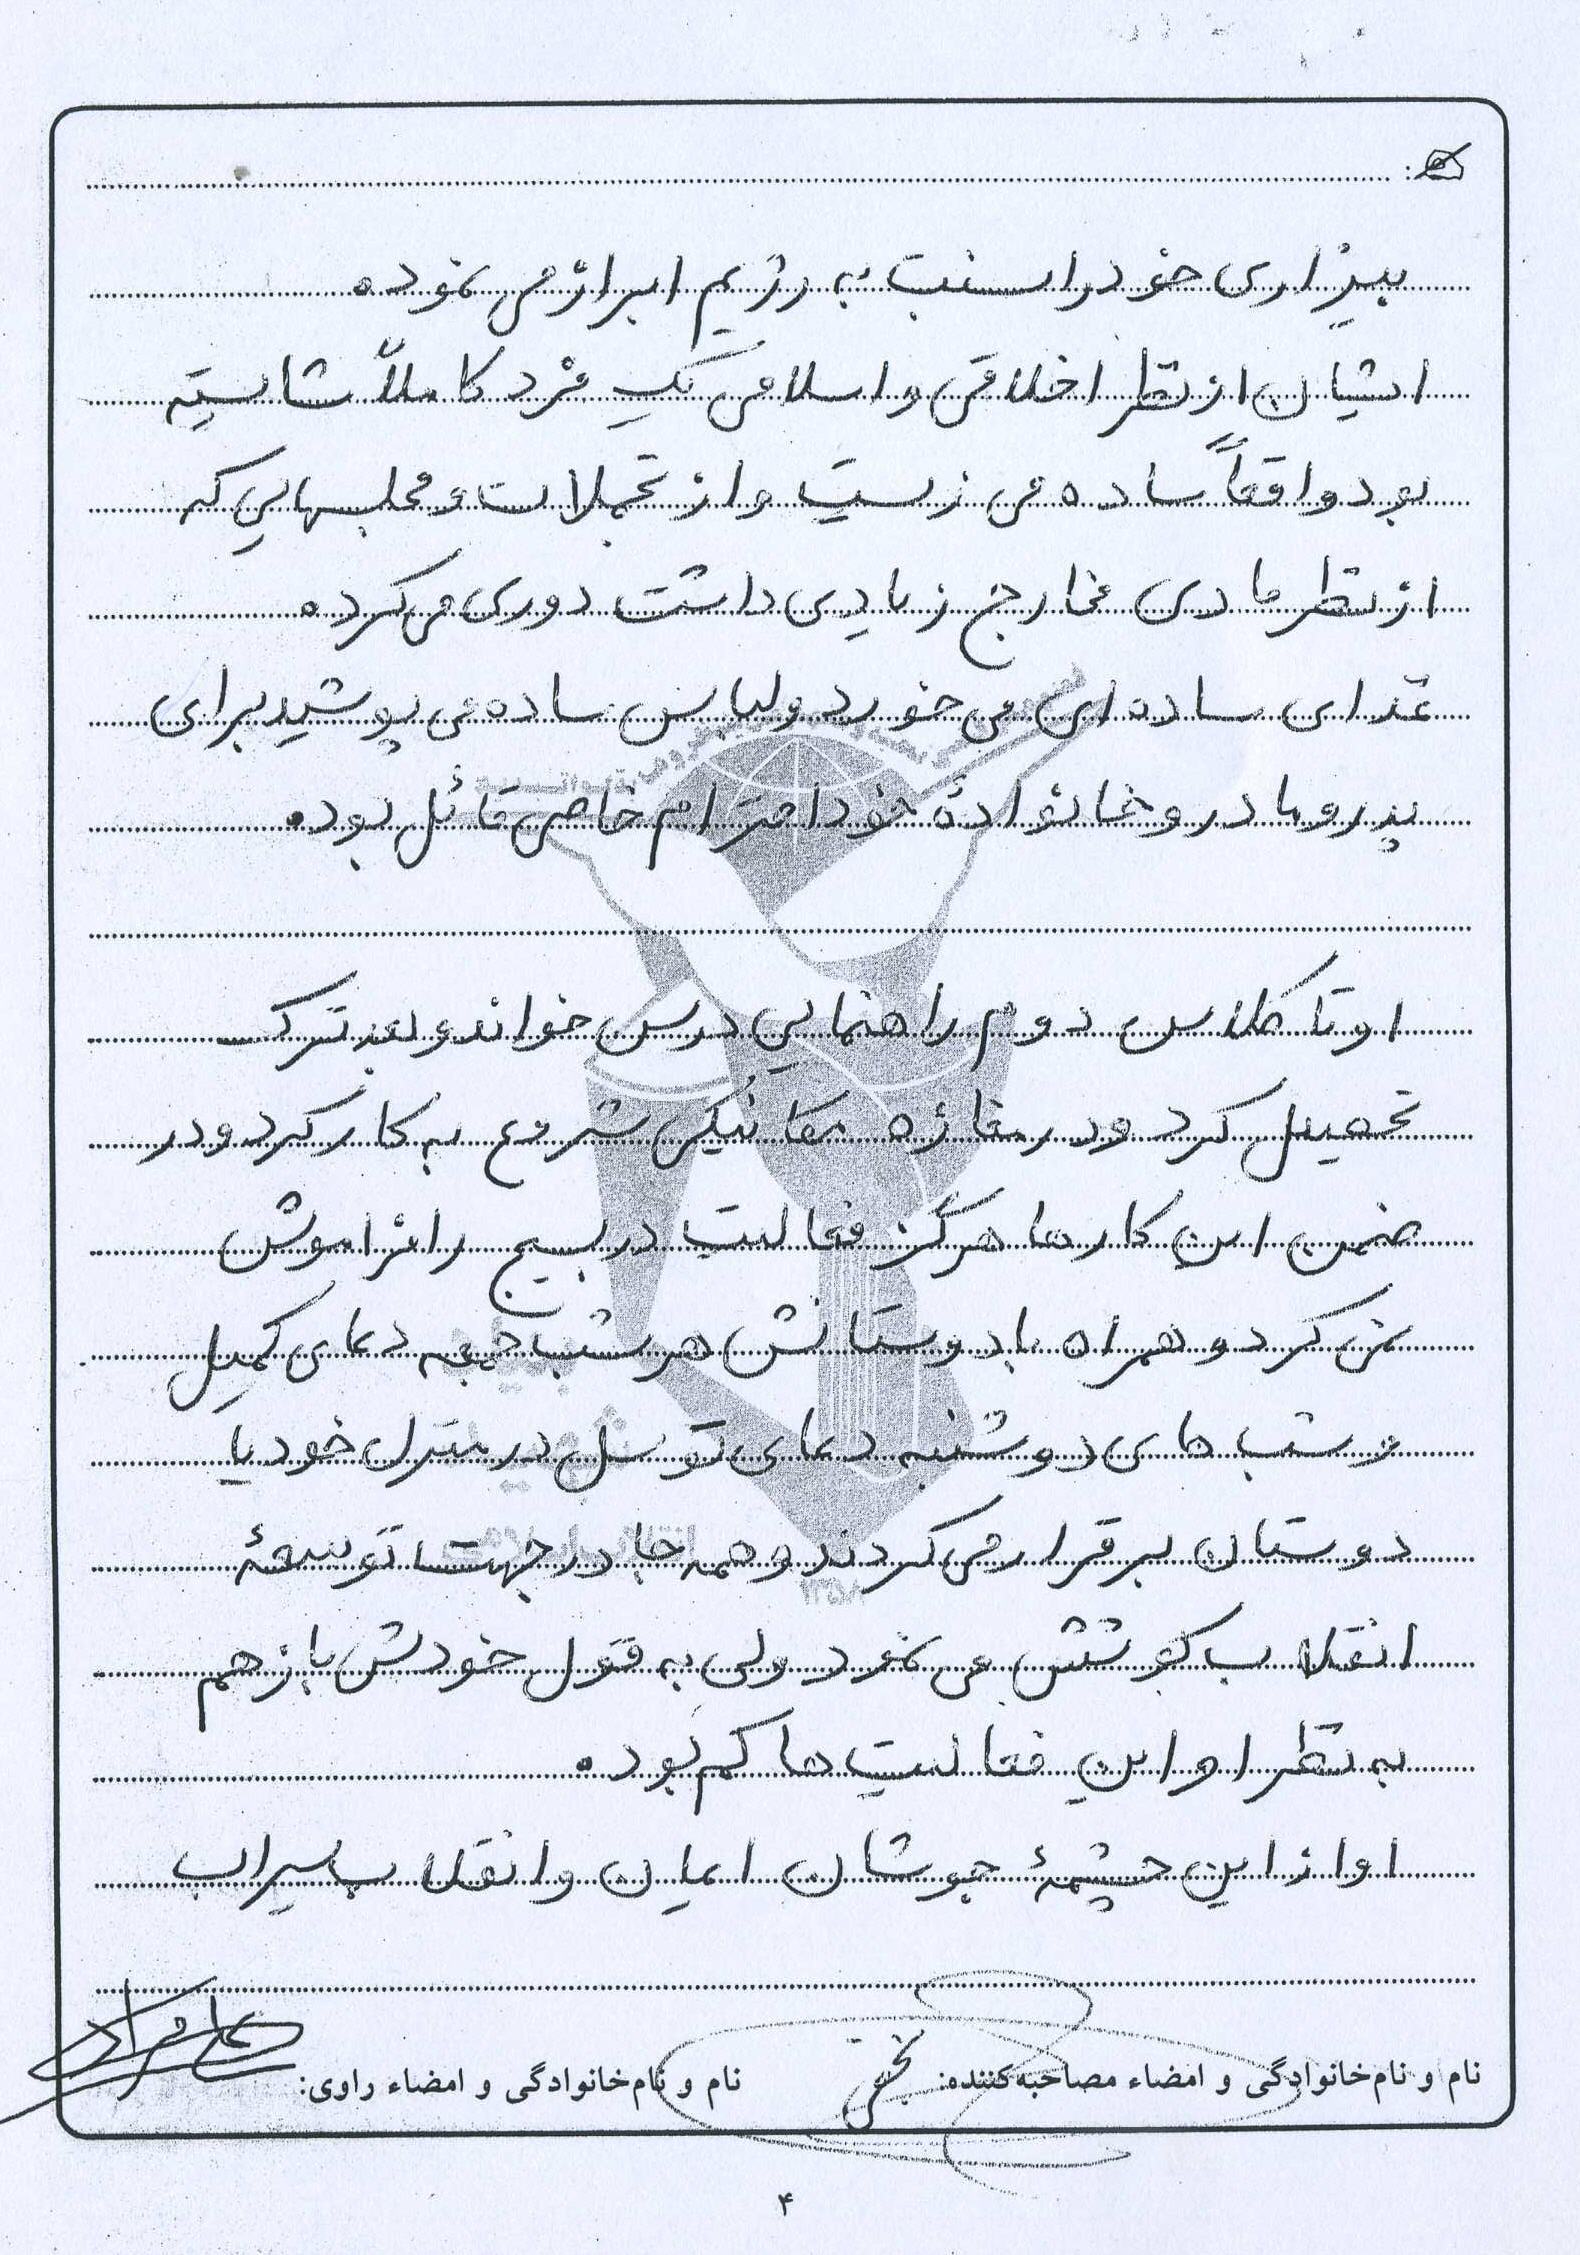 بیزاری خود را نسبت به رژیم ابراز می نموده
ایشان از نظر اخلاقی و اسلامی یک فرد کاملاً شایسته
بود واقعاً ساده می زیست و از تجملات و مجلسهایی که
از نظر مادی مخارج زیادی داشت دوری می کرده
غذای ساده ای می خورد و لباس ساده می پوشید برای
پدر و مادر و خانوادهٔ خود احترام خاصی قائل بوده
او تا کلاس دوم راهنمایی درس خواند و بعد ترک
تحصیل کرد و در مغازه مکانیکی شروع به کار کرد و در
ضمن این کارها هرگز فعالیت در بسیج را فراموش
نمی کرد و همراه با دوستانش هر شب جمعه دعای کمیل
و شب های دوشنبه دعای توسل در منزل خود یا
دوستان برقرار می کردند و همه جا در جهت توسعهٔ
انقلاب کوشش می نمود ولی به قول خودش باز هم
به نظر او این فعالیت ها کم بوده
او از این چشمهٔ جوشان ایمان و انقلاب سیراب
نام و نام‌خانوادگی و امضاء مصاحبه‌کننده:
نام و نام‌خانوادگی و امضاء راوی:
۴